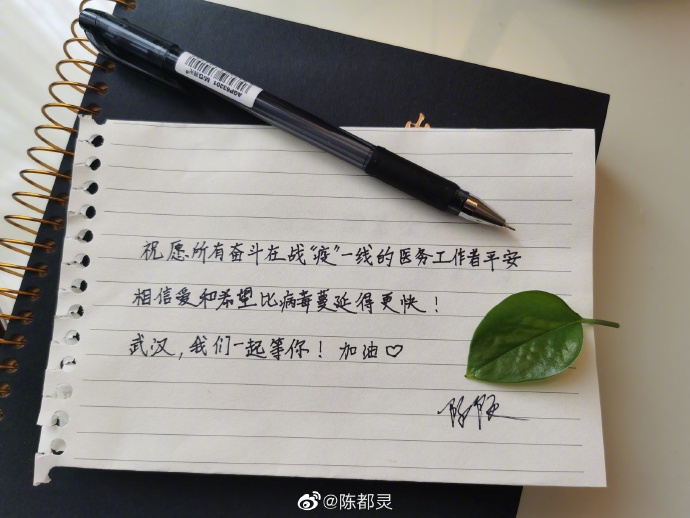 AGPK3201
祝愿所有奋斗在战“疫”一线的医务工作者平安
相信爱和希望比病毒蔓延得更快!
武汉,我们一起等你!加油♡
@陈都灵